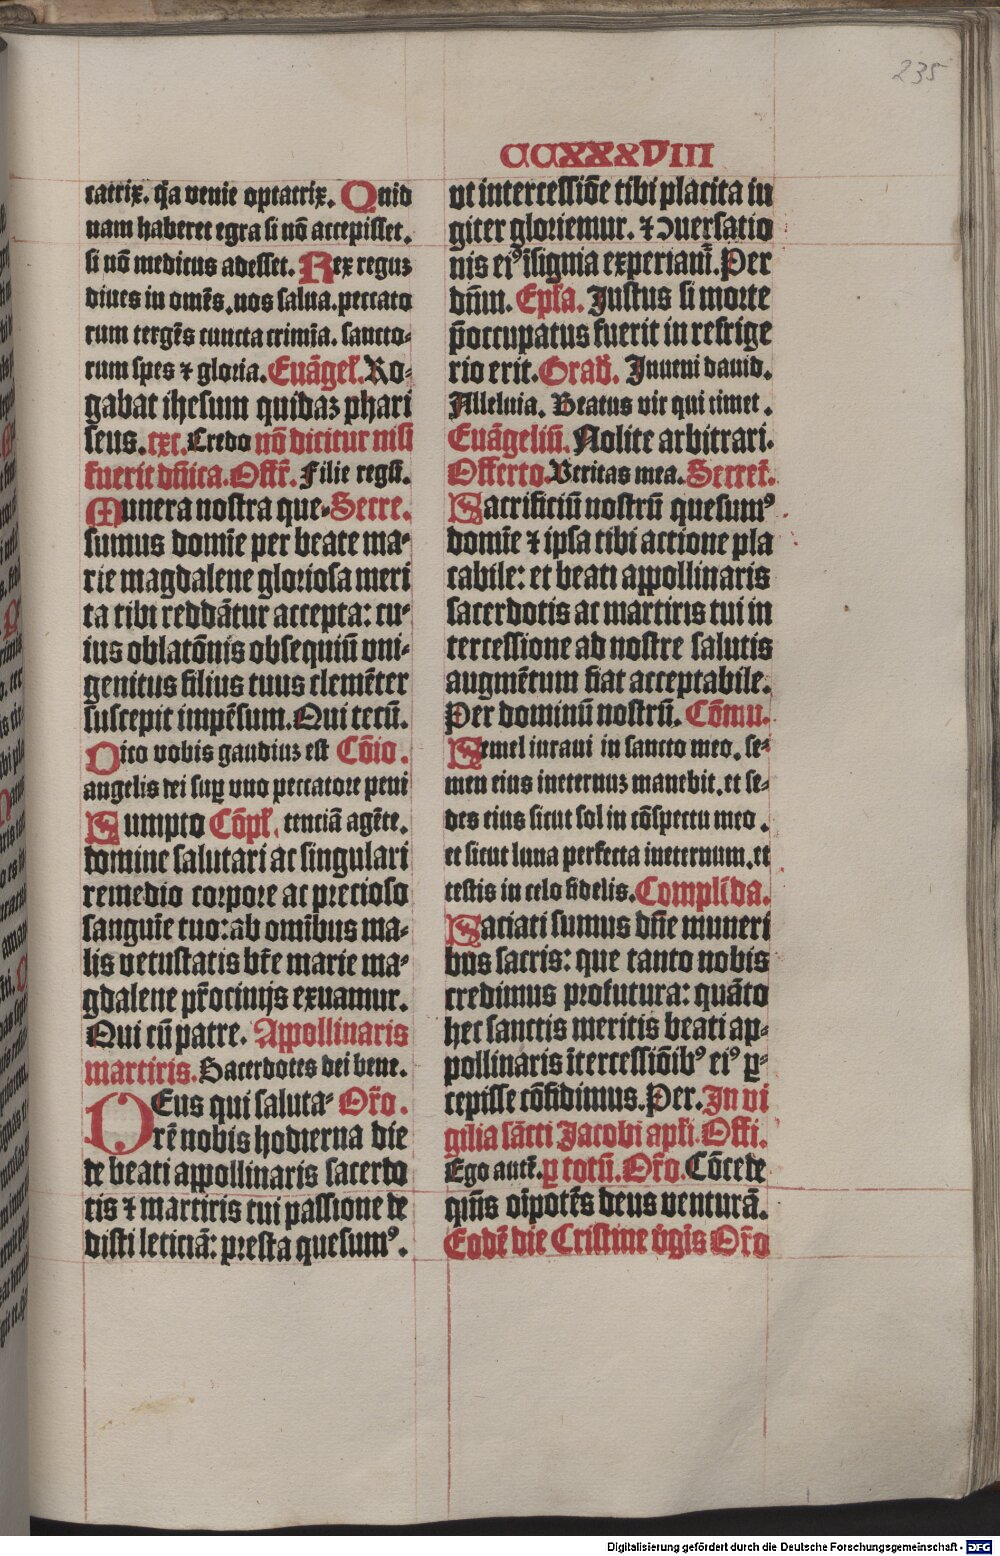 235
CCXXXVIII
catrix. q̄a venie optatrix. Quid
nam haberet egra si nō accepisset.
si nō medicus adesset. Rex reguꝫ
diues in omēs. nos salua. peccato
rum tergēs cuncta crimīa. sancto-
rum spes ⁊ gloria. Euāgel̄. Ro-
gabat ihesum quidaꝫ phari
seus. ꝛꝛc. Credo nō dicitur nisi
fuerit dn̄ica. Off̄r. Filie regū.
Munera nostra que- Secre.
sumus domīe per beate ma-
rie magdalene gloriosa meri
ta tibi reddātur accepta: cu-
ius oblatōnis obsequiū vni-
genitus filius tuus clemēter
suscepit impēsum. Qui tecū.
Dico vobis gaudiuꝫ est Cōio.
angelis dei suꝑ vno peccatore peni
Sumpto Cōpl̄. tenciā agēte.
domine salutari ac singulari
remedio corpore ac precioso
sanguīe tuo: ab omībus ma-
lis vetustatis btē marie ma-
gdalene pr̄ocinijs exuamur.
Qui cū patre. Appollinaris
martiris. Sacerdotes dei bene.
DEus qui saluta- Or̄o.
rē nobis hodierna die
de beati appollinaris sacerdo
tis ⁊ martiris tui passione de
disti leticiā: presta quesumꝰ.
vt intercessiōe tibi placita iu
giter gloriemur. ⁊ ꝯuersatio
nis eiꝰ īsignia experiam̄. Per
dn̄m. Epl̄a. Justus si morte
p̄occupatus fuerit in refrige
rio erit. Grad̄. Inueni dauid.
Alleluia. Beatus vir qui timet.
Euāgeliū. Nolite arbitrari.
Offerto. Veritas mea. Secret̄.
Sacrificiū nostrū quesumꝰ
domīe ⁊ ipsa tibi actione pla
cabile: et beati appollinaris
sacerdotis ac martiris tui in
tercessione ad nostre salutis
augmētum fiat acceptabile.
Per dominū nostrū. Cōmu.
Semel iuraui in sancto meo. se-
men eius ineternuꝫ manebit. et se-
des eius sicut sol in cōspectu meo.
et sicut luna perfecta ineternum. et
testis in celo fidelis. Complēda.
Saciati sumus dn̄e muneri
bus sacris: que tanto nobis
credimus profutura: quāto
hec sanctis meritis beati ap-
pollinaris ītercessiōibꝰ eiꝰ ꝑ-
cepisse cōfidimus. Per. In vi
gilia sācti Jacobi apl̄i. Offi.
Ego aut̄. ꝑ totū. Or̄o. Cōcede
qūs oīpotēs deus venturā.
Eodē die Cristine v̄gīs Or̄o
Digitalisierung gefördert durch die Deutsche Forschungsgemeinschaft - DFG